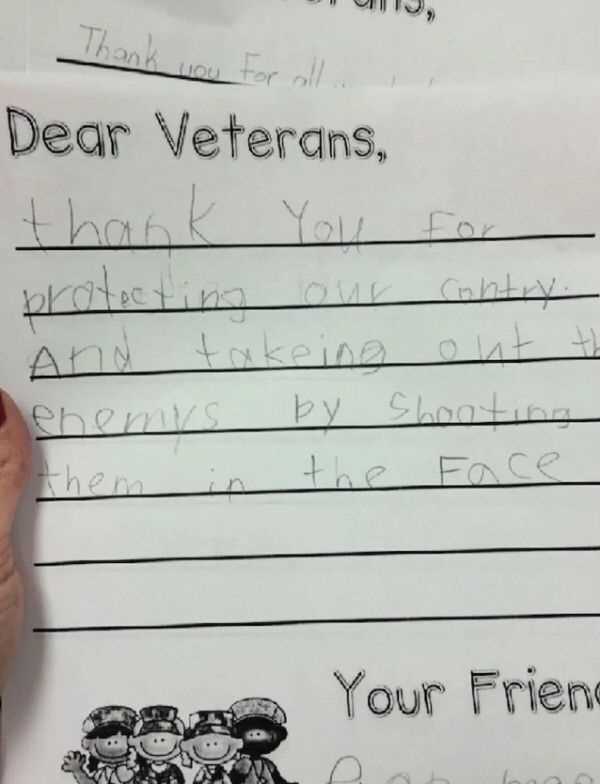 Thank you For all
Dear Veterans,
thank You For
protecting our contry.
And takeing out th
enemys by shooting
them in the Face
Your Frien